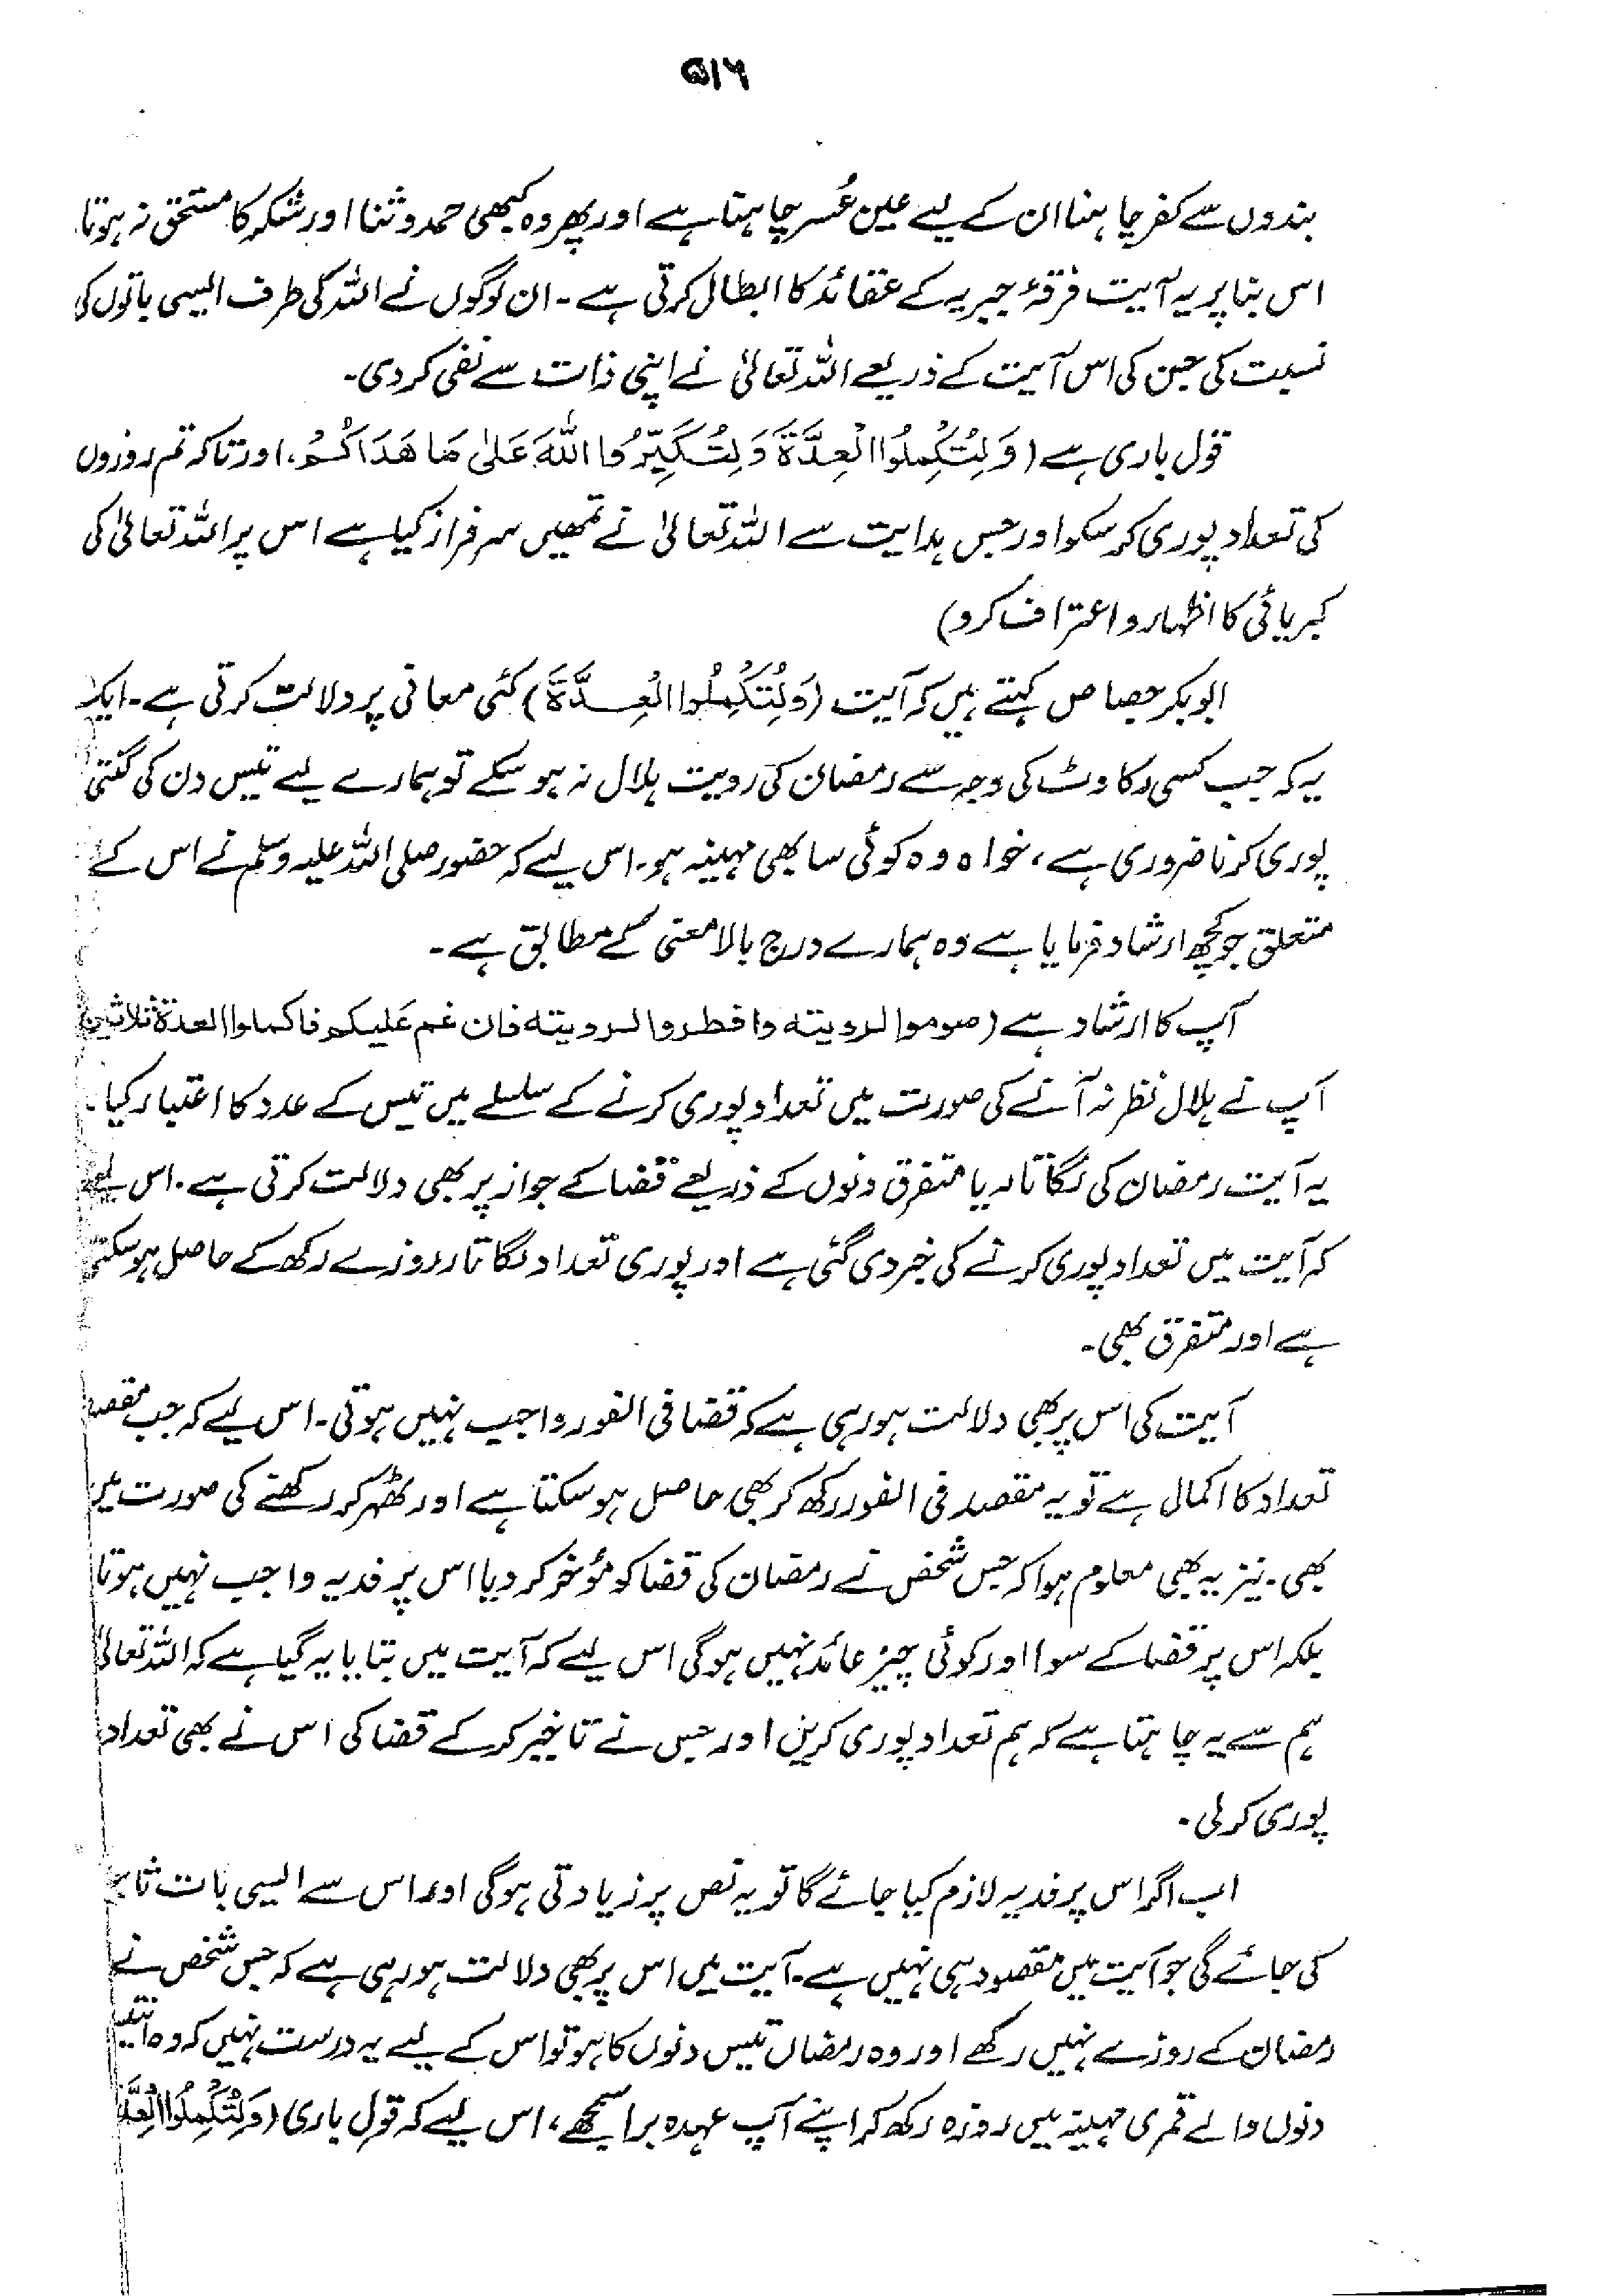 ۵۱۶
بندوں سے کفر چاہنا ان کے لیے عین عُسر چاہتا ہے اور پھر وہ کبھی حمد و ثنا اور شکر کا مستحق نہ ہوتا۔
اس بنا پر یہ آیت فرقۂ جبریہ کے عقائد کا ابطال کرتی ہے۔ ان لوگوں نے اللہ کی طرف ایسی باتوں کی
نسبت کی جن کی اس آیت کے ذریعے اللہ تعالیٰ نے اپنی ذات سے نفی کر دی۔
قول باری ہے (وَلِتُكْمِلُوا الْعِدَّةَ وَلِتُكَبِّرُوا اللّٰهَ عَلٰى مَا هَدَاكُمْ، اور تاکہ تم روزوں
کی تعداد پوری کر سکو اور جس ہدایت سے اللہ تعالیٰ نے تمھیں سرفراز کیا ہے اس پر اللہ تعالیٰ کی
کبریائی کا اظہار و اعتراف کرو)
ابوبکر جصاص کہتے ہیں کہ آیت (وَلِتُكْمِلُوا الْعِدَّةَ) کئی معانی پر دلالت کرتی ہے۔ ایک
یہ کہ جب کسی رکاوٹ کی وجہ سے رمضان کی رویت ہلال نہ ہو سکے تو ہمارے لیے تیس دن کی گنتی
پوری کرنا ضروری ہے، خواہ وہ کوئی سا بھی مہینہ ہو۔ اس لیے کہ حضور صلی اللہ علیہ وسلم نے اس کے
متعلق جو کچھ ارشاد فرمایا ہے وہ ہمارے درج بالا معنی کے مطابق ہے۔
آپ کا ارشاد ہے (صوموا لرویته وافطروا لرویته فان غم علیکم فاکملوا العدة ثلاثین)
آپ نے ہلال نظر نہ آنے کی صورت میں تعداد پوری کرنے کے سلسلے میں تیس کے عدد کا اعتبار کیا۔
یہ آیت رمضان کی لگاتار یا متفرق دنوں کے ذریعے قضا کے جواز پر بھی دلالت کرتی ہے۔ اس لیے
کہ آیت میں تعداد پوری کرنے کی خبر دی گئی ہے اور پوری تعداد لگاتار روزے رکھ کے حاصل ہو سکتی
ہے اور متفرق بھی۔
آیت کی اس پر بھی دلالت ہو رہی ہے کہ قضا فی الفور واجب نہیں ہوتی۔ اس لیے کہ جب مقصد
تعداد کا اکمال ہے تو یہ مقصد فی الفور رکھ کر بھی حاصل ہو سکتا ہے اور ٹھہر کر رکھنے کی صورت میں
بھی۔ نیز یہ بھی معلوم ہوا کہ جس شخص نے رمضان کی قضا کو مؤخر کر دیا اس پر فدیہ واجب نہیں ہوتا
بلکہ اس پر قضا کے سوا اور کوئی چیز عائد نہیں ہوگی اس لیے کہ آیت میں بتایا یہ گیا ہے کہ اللہ تعالیٰ
ہم سے یہ چاہتا ہے کہ ہم تعداد پوری کریں اور جس نے تاخیر کر کے قضا کی اس نے بھی تعداد
پوری کر لی۔
اب اگر اس پر فدیہ لازم کیا جائے گا تو یہ نص پر زیادتی ہوگی اور اس سے ایسی بات
کی جائے گی جو آیت میں مقصود ہی نہیں ہے۔ آیت میں اس پر بھی دلالت ہو رہی ہے کہ جس شخص نے
رمضان کے روزے نہیں رکھے اور وہ رمضان تیس دنوں کا ہو تو اس کے لیے یہ درست نہیں کہ وہ
دنوں والے قمری مہینہ میں روزہ رکھ کر اپنے آپ عہدہ برا سمجھے، اس لیے کہ قولِ باری (وَلِتُكْمِلُوا الْعِدَّةَ